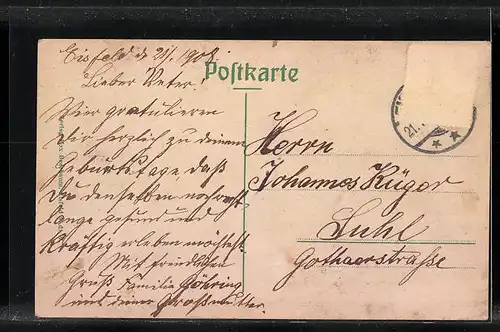 Eisfeld d. 21/1. 1908.
Lieber Vetter!
Postkarte
Wir gratulieren
Dir herzlich zu deinem
Geburtstage, daß
Du denselben noch recht
lange gesund und
kräftig erleben möchtest.
Mit freundlichen
Gruß Familie Göhring
und deiner Großmutter.
Herrn
Johannes Krüger
Suhl
Gothaerstraße
21.